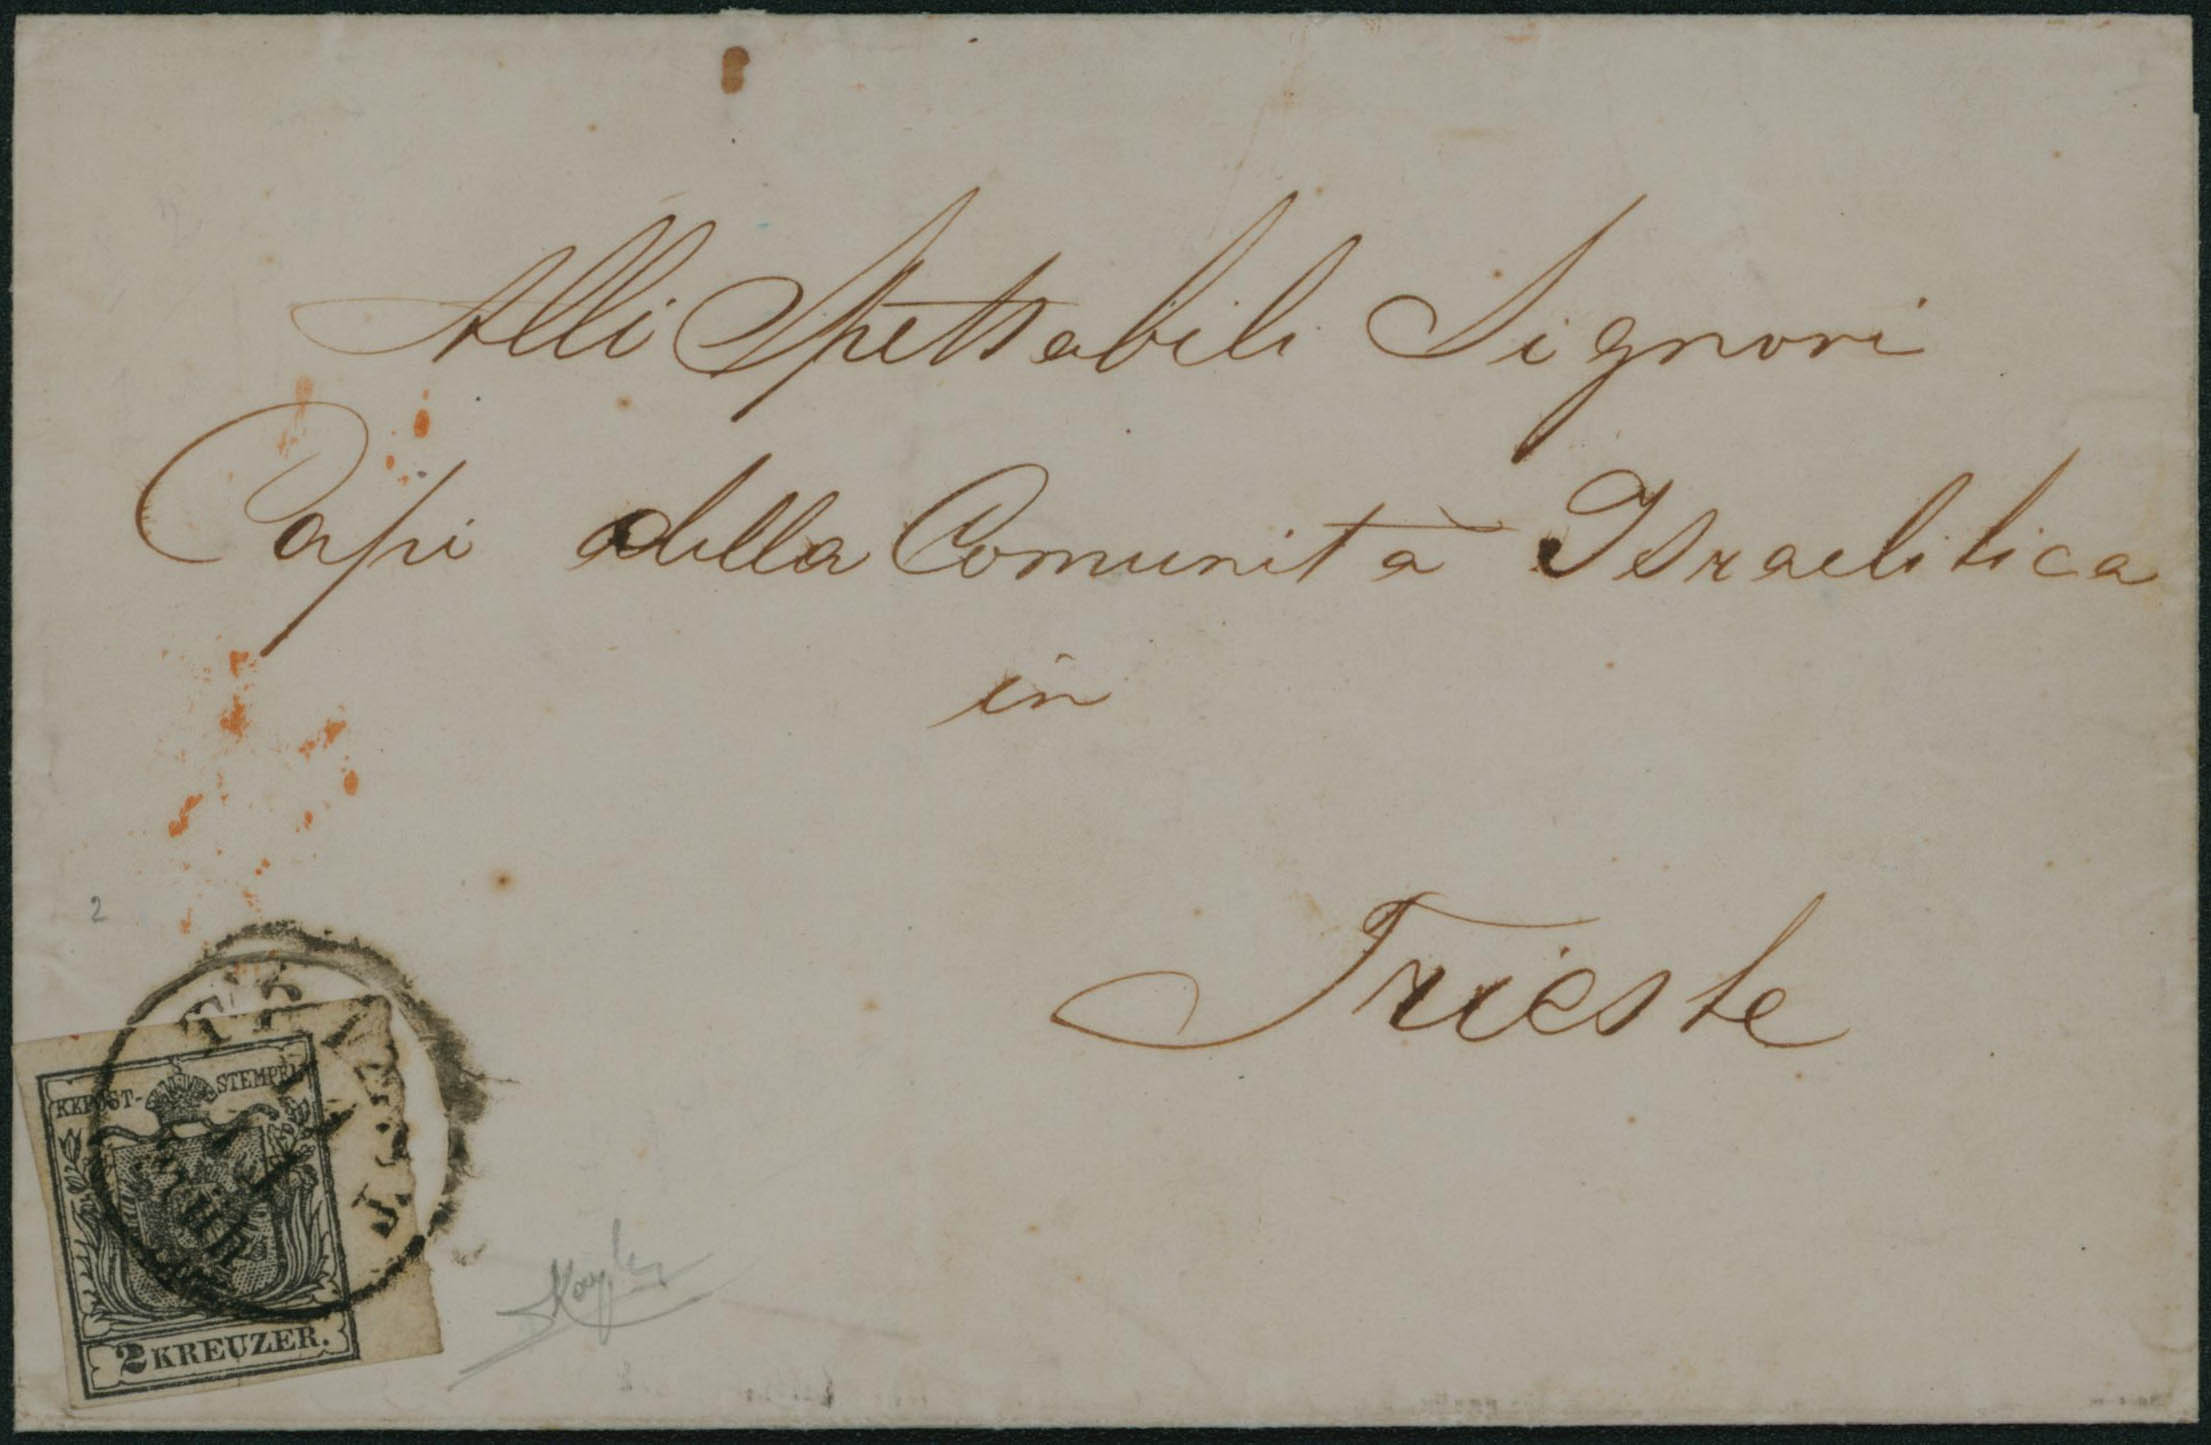 Alli Spettabili Signori
Capi della Comunità Israelitica
in
Trieste
2
KKPOST-STEMPEL
2 KREUZER.